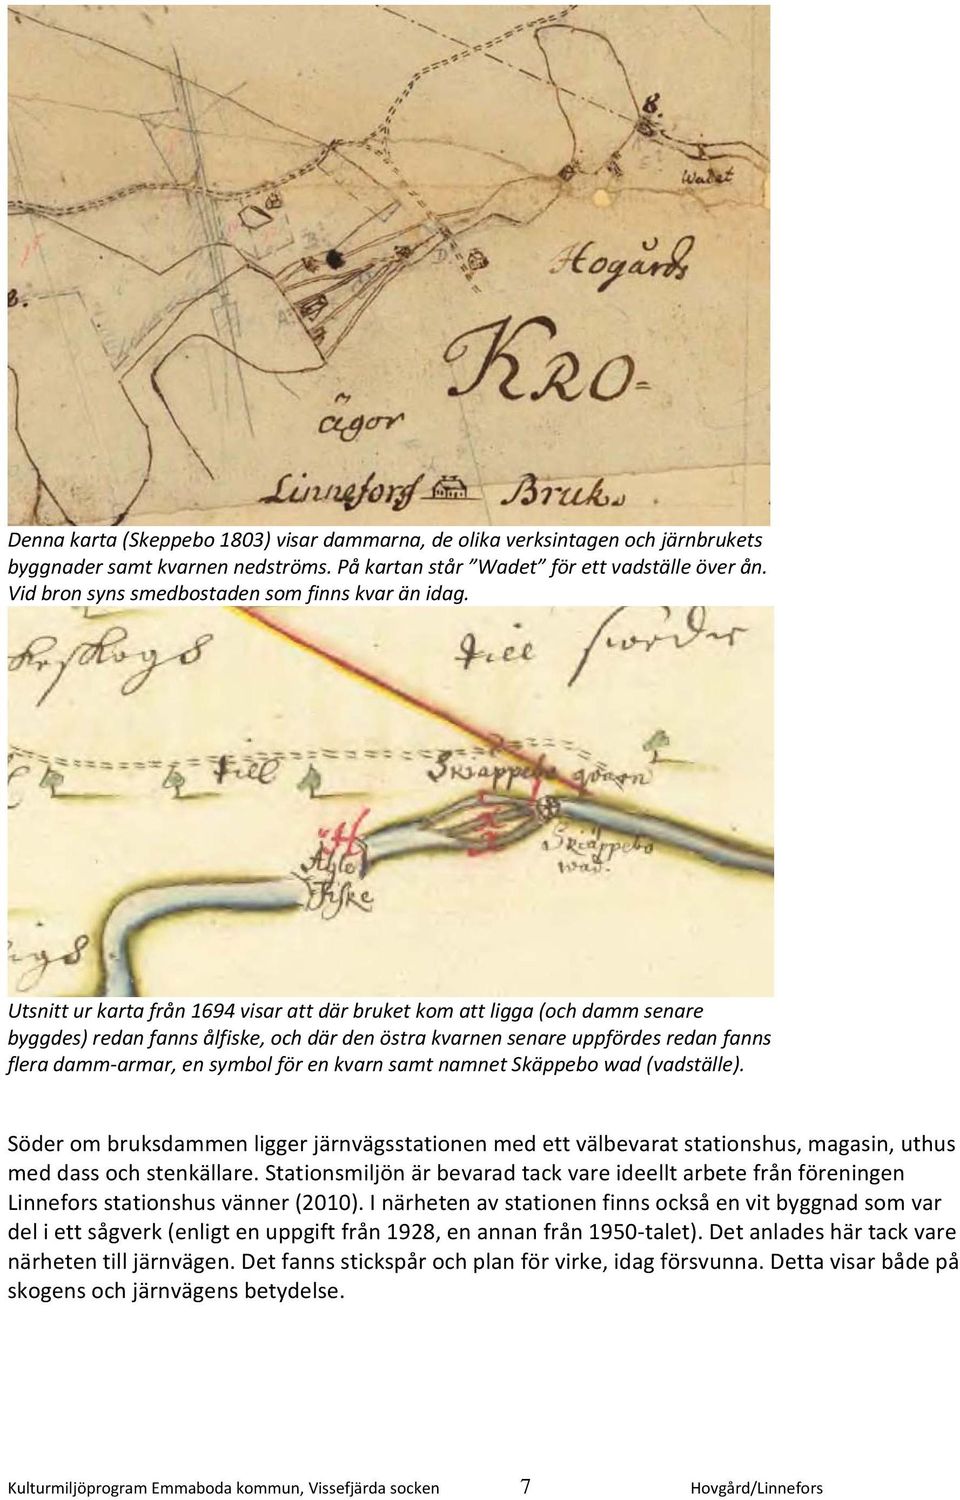 8.
Wadet
Hogårds
KRO=
ägor
Linnefors Bruk.
Denna karta (Skeppebo 1803) visar dammarna, de olika verksintagen och järnbrukets
byggnader samt kvarnen nedströms. På kartan står ”Wadet” för ett vadställe över ån.
Vid bron syns smedbostaden som finns kvar än idag.
till
till Skiappebo qvarn
Skiäppebo
wad.
Åhle
Fiske
Utsnitt ur karta från 1694 visar att där bruket kom att ligga (och damm senare
byggdes) redan fanns ålfiske, och där den östra kvarnen senare uppfördes redan fanns
flera damm-armar, en symbol för en kvarn samt namnet Skäppebo wad (vadställe).
Söder om bruksdammen ligger järnvägsstationen med ett välbevarat stationshus, magasin, uthus
med dass och stenkällare. Stationsmiljön är bevarad tack vare ideellt arbete från föreningen
Linnefors stationshus vänner (2010). I närheten av stationen finns också en vit byggnad som var
del i ett sågverk (enligt en uppgift från 1928, en annan från 1950-talet). Det anlades här tack vare
närheten till järnvägen. Det fanns stickspår och plan för virke, idag försvunna. Detta visar både på
skogens och järnvägens betydelse.
Kulturmiljöprogram Emmaboda kommun, Vissefjärda socken 7 Hovgård/Linnefors